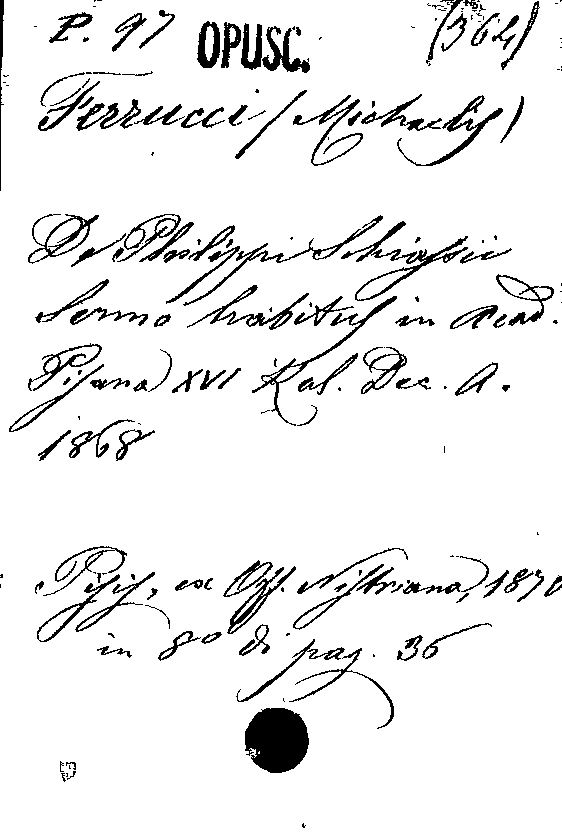 P. 97 OPUSC. (364)
Ferrucci (Michaelis)
De Philippi Schiassii
Sermo habitus in Acad.
Pisana XVI Kal. Dec. A.
1868
Pisis, ex Off. Nistriana, 1870
in 8º di pag. 36